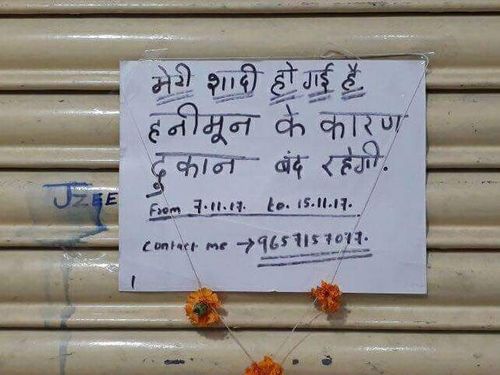 मेरी शादी हो गई है
हनीमून के कारण
दुकान बंद रहेगी.
From 7.11.17. to. 15.11.17.
Contact me → 9657157077.
JZEE